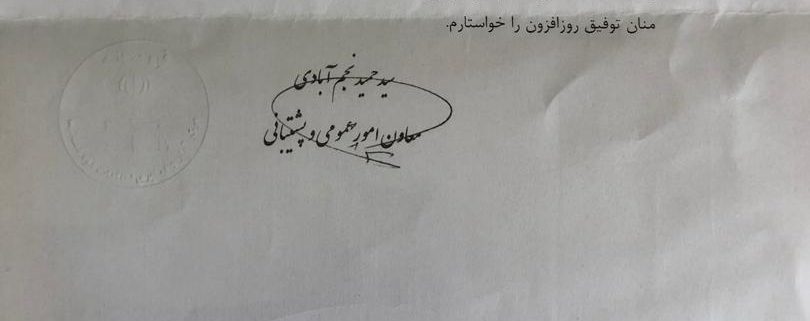 منان توفیق روزافزون را خواستارم.
سید حمید نجم آبادی
معاون امور عمومی و پشتیبانی